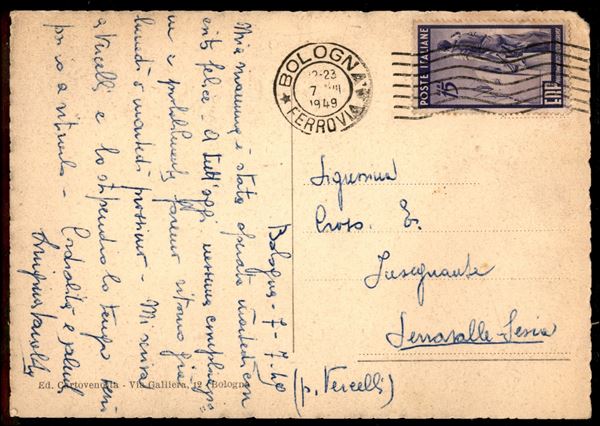 BOLOGNA
12-23
7
1949
FERROVIA
POSTE ITALIANE
15
ERP
Bologna - 7-7.49
Mia mamma è stata operata martedì con
esito felice - A tutt'oggi nessuna complicazio=
ne e probabilmente faremo ritorno fra
lunedì o martedì prossimo - Mi servirà
a Vercelli e lo stipendio lo tengo
prima a ritirarlo -
Cordialità e saluti
Signorina
Croso E.
Insegnante
Serravalle-Sesia
(p. Vercelli)
Ed. Cartovendita - Via Galliera, 12 - Bologna